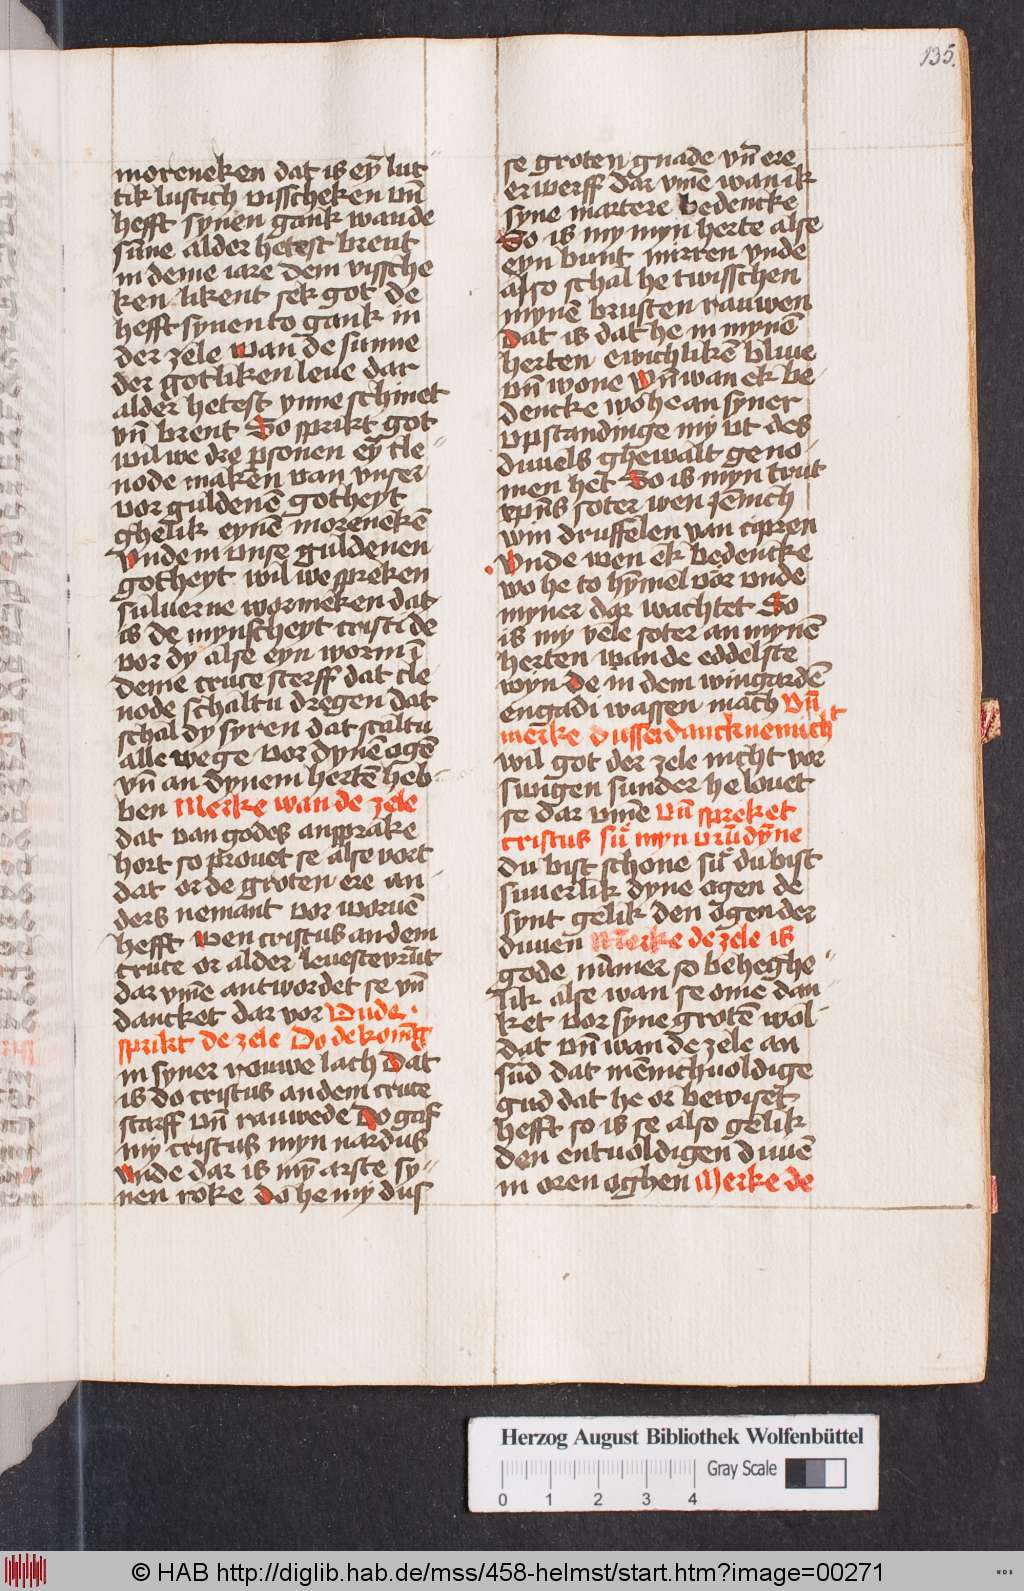 135.
moreneken dat is eȳ lut
tik lustich visscheken vn̄
hefft synen gank wan de
sūne alder hetest brent
in deme iare dem vissche
ken likent sek got de
hefft synen to gank in
der zele wan de sunne
der gotliken leue dar
alder hetest ynne schinet
vn̄ brent So sprikt got
wil we dre ꝑsonen eȳ cle
node maken van vnser
vor guldenē gotheyt
ghelik eynē morenekē
Vnde in vnse guldenen
gotheyt wil we spreken
suluerne wormeken dat
is de mynscheyt cristi de
vor dy alse eyn worm ī
deme cruce sterff dat cle
node schaltu dregen dat
schal dy syren dat scaltu
alle wege vor dynē ogē
vn̄ an dynem hertē heb
ben Merke wan de zele
dat van godes ansprake
hort so prouet se alse vort
dat or de groten ere an
ders nemant vor woruē
hefft Wen cristus an dem
cruce or alder leueste vrūt
dar vm̄e antwordet se vn̄
dancket dar vor Vnde
sprikt de zele Do de konīg
in syner rouwe lach Dat
is do cristus an dem cruce
starff vn̄ rauwede Do gaf
my cristus myn nardus
Vnde dar is mȳ arste sy
nen roke do he my dus
se groten gnade vn̄ ere
er werff dar vm̄e wan ik
syne martere bedencke
So is my myn herte alse
eyn bunt mirren vnde
also schal he twisschen
mynē brusten rauwen
Dat is dat he in mynē
herten ewichlikē bliue
vn̄ wone Vn̄ wan ek be
dencke wo he an syner
vpstandinge my vt des
duuels ghewalt geno
men het So is myn trut
xp̄us soter wen jēnich
win druffelen van cipren
Vnde wen ek bedencke
wo he to hȳmel vor vnde
myner dar wachtet So
is my vele soter an mynē
herten wan de eddelste
wyn de in dem wingardē
engadi wassen mach Vn̄
merke dusser dancknemicht
wil got der zele nicht vor
swigen sunder he louet
se dar vm̄e Vn̄ spreket
cristus su̇ myn vrūdȳne
du bist schone su̇ du bist
suuerlik dyne ogen de
synt gelik den ogen der
duuen Merke de zele is
gode nūmer so beheghe
lik alse wan se ome dan
ket vor syne grotē wol
dat vn̄ wan de zele an
sūd dat mēnichuoldige
gud dat he or bewiset
hefft so is se also gelik
den entuoldigen duuē
in oren oghen Merke de
Herzog August Bibliothek Wolfenbüttel
Gray Scale
0 1 2 3 4
© HAB http://diglib.hab.de/mss/458-helmst/start.htm?image=00271